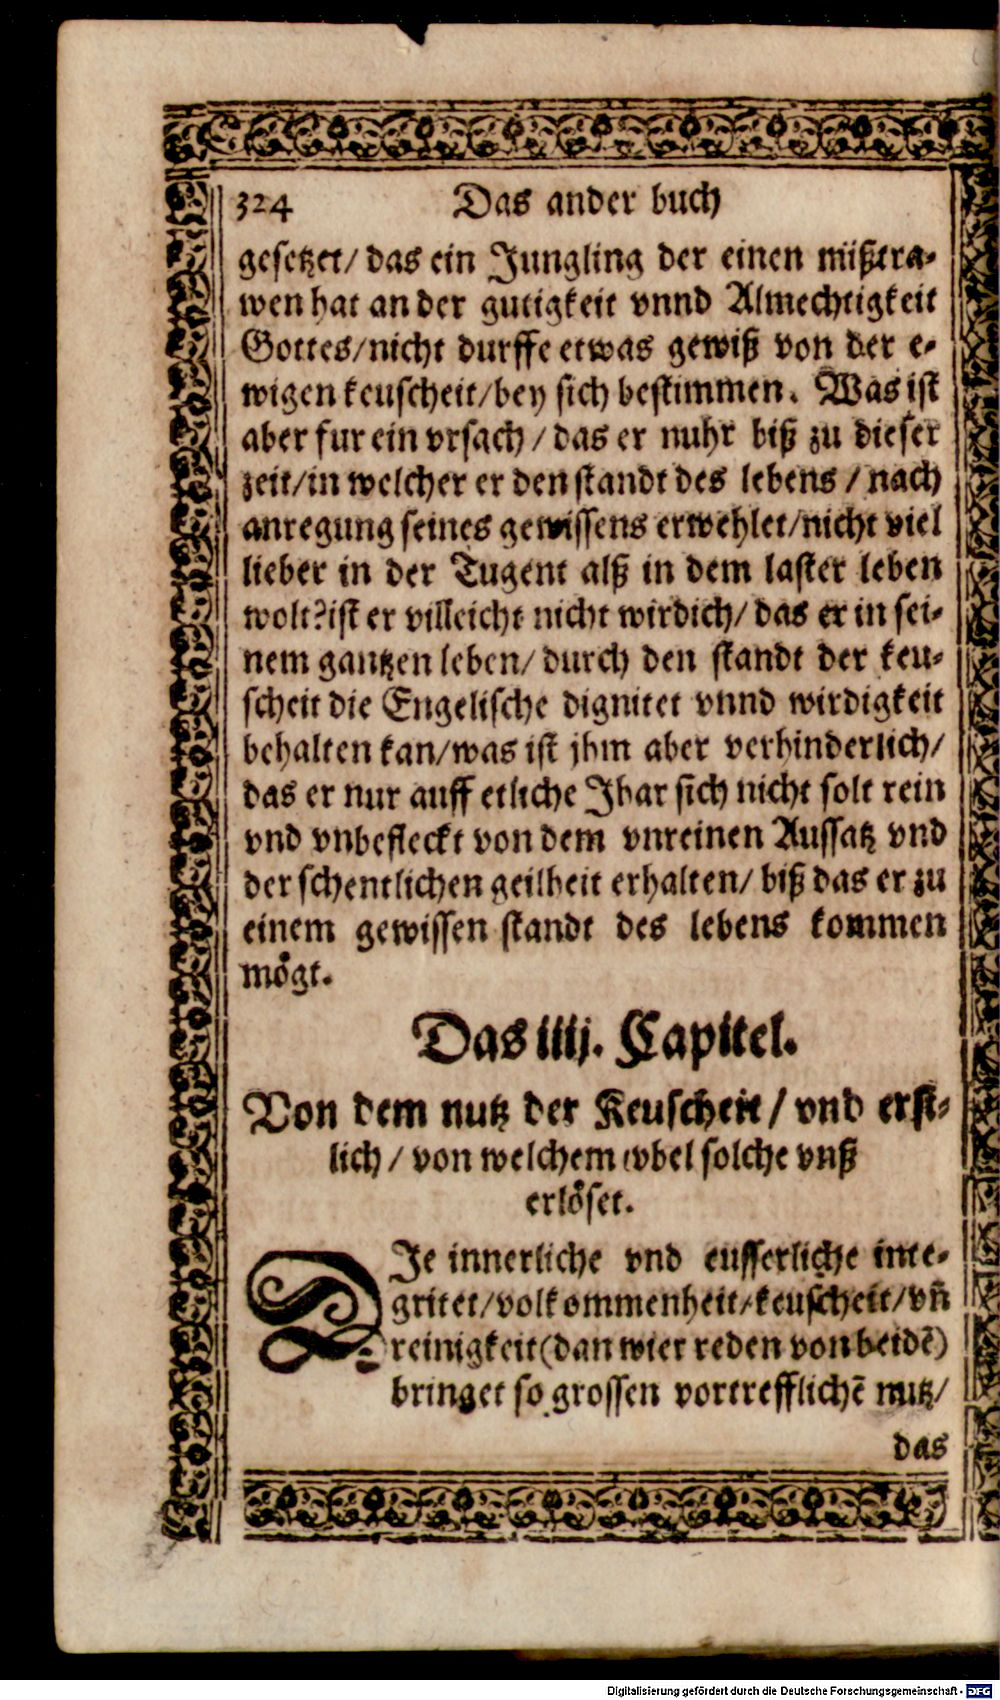 324 Das ander buch
gesetzet/ das ein Jungling der einen mißtra-
wen hat an der gutigkeit vnnd Almechtigkeit
Gottes/nicht durffe etwas gewiß von der e-
wigen keuscheit/bey sich bestimmen. Was ist
aber fur ein vrsach / das er nuhr biß zu dieser
zeit/in welcher er den standt des lebens / nach
anregung seines gewissens erwehlet/nicht viel
lieber in der Tugent alß in dem laster leben
wolt?ist er villeicht nicht wirdich/ das er in sei-
nem gantzen leben/ durch den standt der keu-
scheit die Engelische dignitet vnnd wirdigkeit
behalten kan/was ist jhm aber verhinderlich/
das er nur auff etliche Jhar sich nicht solt rein
vnd vnbefleckt von dem vnreinen Aussatz vnd
der schentlichen geilheit erhalten/ biß das er zu
einem gewissen standt des lebens kommen
mögt.
Das iiij. Capitel.
Von dem nutz der Keuscheit / vnd erst-
lich / von welchem vbel solche vnß
erlöset.
DJe innerliche vnd eusserliche inte-
gritet/volkommenheit/keuscheit/vñ
reinigkeit(dan wier reden von beidē)
bringet so grossen vortrefflichē nutz/
das
Digitalisierung gefördert durch die Deutsche Forschungsgemeinschaft - DFG